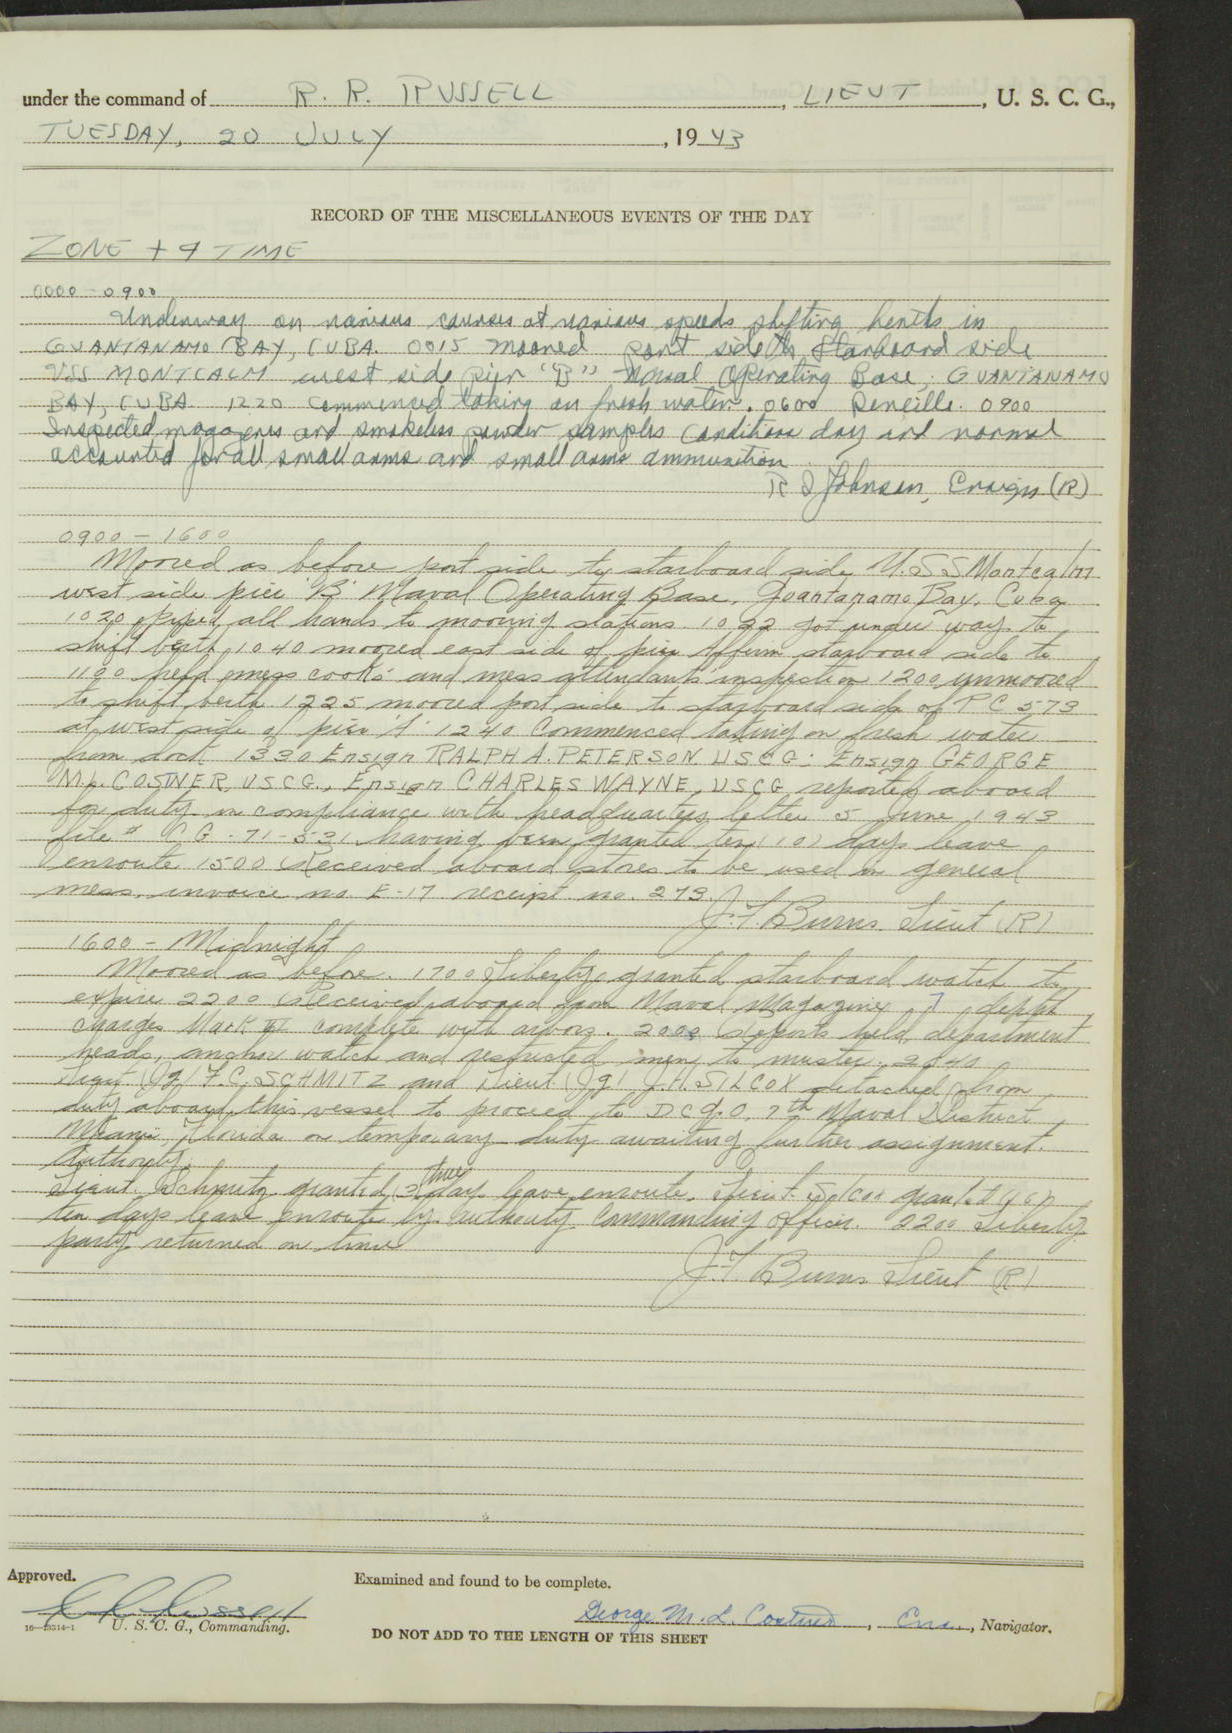 under the command of R. R. RUSSELL, LIEUT, U. S. C. G.,
TUESDAY, 20 JULY, 1943
RECORD OF THE MISCELLANEOUS EVENTS OF THE DAY
ZONE + 4 TIME
0000 - 0900
Underway on various courses at various speeds shifting berths in
GUANTANAMO BAY, CUBA. 0015 moored port side to starboard side
USS MONTCALM west side pier "B" Naval Operating Base, GUANTANAMO
BAY, CUBA 1220 commenced taking on fresh water. 0600 Reveille. 0900
Inspected magazines and smokeless powder samples condition dry and normal
accounted for all small arms and small arms ammunition
R J Johnson, Ensign (R)
0900 - 1600
Moored as before port side to starboard side U.S.S Montcalm
west side pier 'B' Naval Operating Base, Guantanamo Bay, Cuba
1020 piped all hands to mooring stations 1022 got under way to
shift berth, 1040 moored east side of pier starboard side to
1100 held mess cooks' and mess attendants' inspection 1200 unmoored
to shift berth 1225 moored port side to starboard side of PC 573
at west side of pier '1' 1240 Commenced taking on fresh water
from dock 1330 Ensign RALPH A. PETERSON USCG; Ensign GEORGE
M.L. COSTNER, USCG., Ensign CHARLES WAYNE, USCG, reported aboard
for duty in compliance with headquarters letter 5 June 1943
file # CG-71-531 having been granted ten (10) days leave
enroute 1500 Received aboard stores to be used in general
mess, invoice no. E-17 receipt no. 273.
J.F. Burns Lieut (R)
1600 - Midnight
Moored as before. 1700 Liberty granted starboard watch to
expire 2200 Received aboard from Naval Magazine 7 depth
charges Mark VI complete with arbors. 2000 Reports held, department
heads, anchor watch and restricted men to muster. 2040
Lieut (jg) F.C. SCHMITZ and Lieut (jg) J.H. SILCOX detached from
duty aboard this vessel to proceed to DCGO, 7th Naval District,
Miami, Florida on temporary duty awaiting further assignment.
Authority.
Lieut. Schmitz granted three days leave enroute. Lieut. Silcox granted
ten days leave enroute by authority Commanding Officer. 2200 Liberty
party returned on time
J.F. Burns Lieut (R)
Approved.
R R Russell
16-13314-1 U. S. C. G., Commanding.
Examined and found to be complete.
George M. L. Costner, Ens., Navigator.
DO NOT ADD TO THE LENGTH OF THIS SHEET